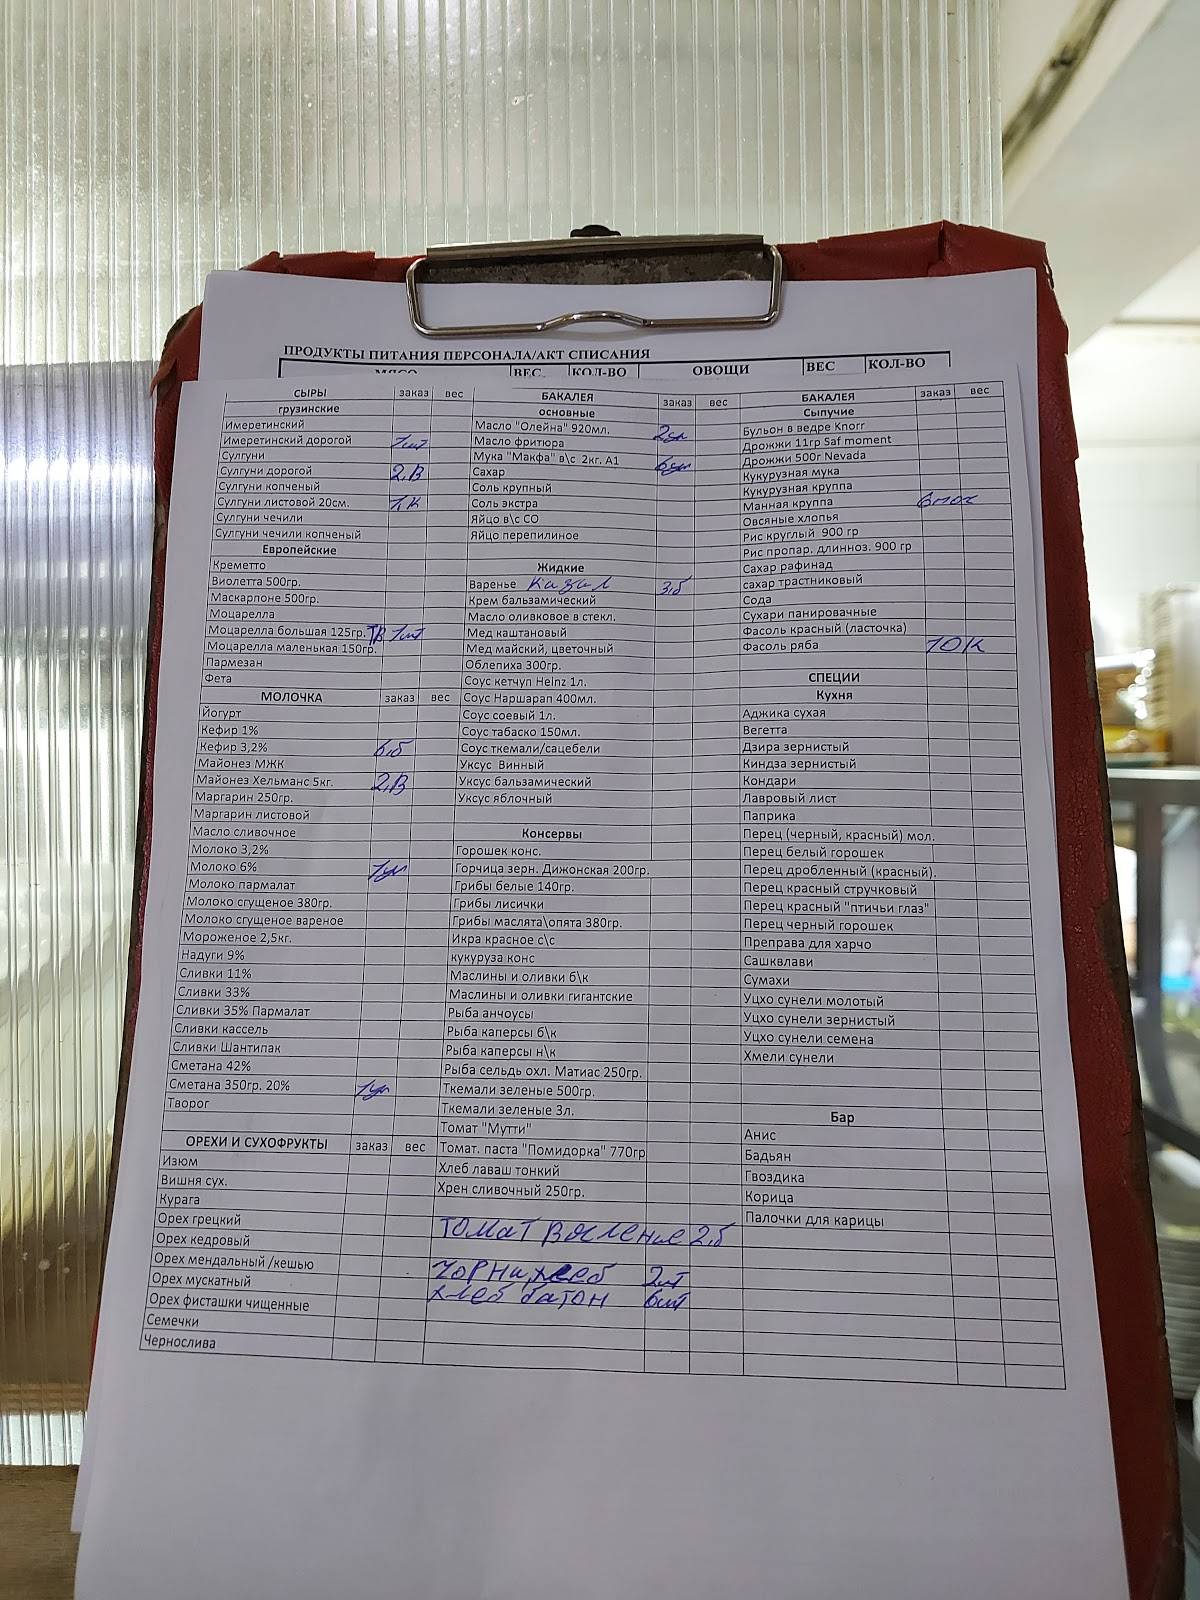 ПРОДУКТЫ ПИТАНИЯ ПЕРСОНАЛА/АКТ СПИСАНИЯ
МЯСО ВЕС КОЛ-ВО ОВОЩИ ВЕС КОЛ-ВО
СЫРЫ заказ вес
грузинские
Имеретинский
Имеретинский дорогой 1шт
Сулгуни
Сулгуни дорогой 2.В
Сулгуни копченый
Сулгуни листовой 20см. 1.К
Сулгуни чечили
Сулгуни чечили копченый
Европейские
Креметто
Виолетта 500гр.
Маскарпоне 500гр.
Моцарелла
Моцарелла большая 125гр. ТВ 1шт
Моцарелла маленькая 150гр.
Пармезан
Фета
МОЛОЧКА заказ вес
Йогурт
Кефир 1%
Кефир 3,2% 6.б
Майонез МЖК
Майонез Хельманс 5кг. 2.В
Маргарин 250гр.
Маргарин листовой
Масло сливочное
Молоко 3,2%
Молоко 6% 1уп
Молоко пармалат
Молоко сгущеное 380гр.
Молоко сгущеное вареное
Мороженое 2,5кг.
Надуги 9%
Сливки 11%
Сливки 33%
Сливки 35% Пармалат
Сливки кассель
Сливки Шантипак
Сметана 42%
Сметана 350гр. 20% 1уп
Творог
ОРЕХИ И СУХОФРУКТЫ заказ вес
Изюм
Вишня сух.
Курага
Орех грецкий
Орех кедровый
Орех мендальный /кешью
Орех мускатный
Орех фисташки чищенные
Семечки
Чернослива
БАКАЛЕЯ
основные заказ вес
Масло "Олейна" 920мл. 2уп
Масло фритюра
Мука "Макфа" в\с 2кг. А1 6уп
Сахар
Соль крупный
Соль экстра
Яйцо в\с СО
Яйцо перепилиное
Жидкие
Варенье Кизил 3.б
Крем бальзамический
Масло оливковое в стекл.
Мед каштановый
Мед майский, цветочный
Облепиха 300гр.
Соус кетчуп Heinz 1л.
Соус Наршарап 400мл.
Соус соевый 1л.
Соус табаско 150мл.
Соус ткемали/сацебели
Уксус Винный
Уксус бальзамический
Уксус яблочный
Консервы
Горошек конс.
Горчица зерн. Дижонская 200гр.
Грибы белые 140гр.
Грибы лисички
Грибы маслята\опята 380гр.
Икра красное с\с
кукуруза конс
Маслины и оливки б\к
Маслины и оливки гигантские
Рыба анчоусы
Рыба каперсы б\к
Рыба каперсы н\к
Рыба сельдь охл. Матиас 250гр.
Ткемали зеленые 500гр.
Ткемали зеленые 3л.
Томат "Мутти"
Томат. паста "Помидорка" 770гр
Хлеб лаваш тонкий
Хрен сливочный 250гр.
Томат вяление 2.б
Чорни хлеб 2шт
хлеб батон 6шт
БАКАЛЕЯ заказ вес
Сыпучие
Бульон в ведре Knorr
Дрожжи 11гр Saf moment
Дрожжи 500г Nevada
Кукурузная мука
Кукурузная круппа
Манная круппа 6пач
Овсяные хлопья
Рис круглый 900 гр
Рис пропар. длинноз. 900 гр
Сахар рафинад
сахар трастниковый
Сода
Сухари панировачные
Фасоль красный (ласточка)
Фасоль ряба 10К
СПЕЦИИ
Кухня
Аджика сухая
Вегетта
Дзира зернистый
Киндза зернистый
Кондари
Лавровый лист
Паприка
Перец (черный, красный) мол.
Перец белый горошек
Перец дробленный (красный).
Перец красный стручковый
Перец красный "птичьи глаз"
Перец черный горошек
Преправа для харчо
Сашквлави
Сумахи
Уцхо сунели молотый
Уцхо сунели зернистый
Уцхо сунели семена
Хмели сунели
Бар
Анис
Бадьян
Гвоздика
Корица
Палочки для карицы